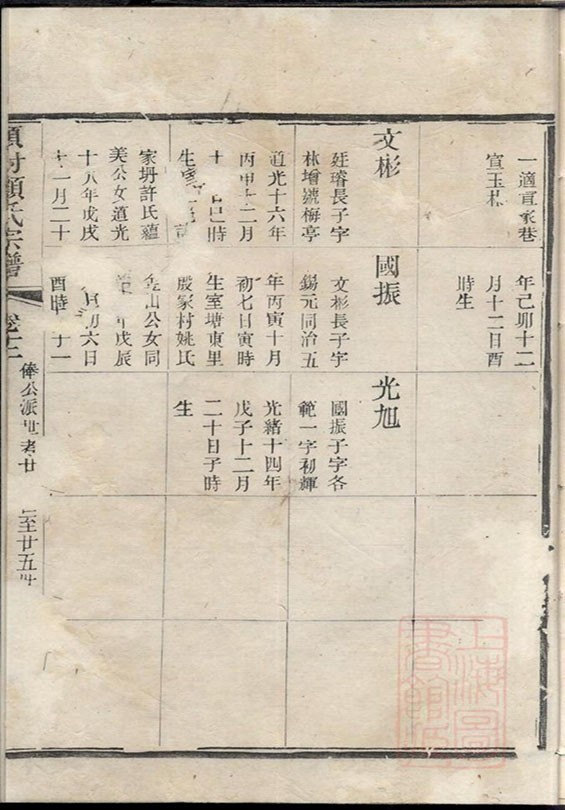 一適
巷
宣玉
年己卯十二
月十二日酉
時生
文彬
廷璿長子字
林增號梅亭
道光十六年
丙申十二月
時
生室
家坍許氏蘊
美公女道光
十八年戊戌
十一月二十
國振
文彬長子字
錫元同治五
年丙寅十月
初七日寅時
生室塘東里
殷家村姚氏
金山公女同
戊辰
初六日
酉時
光旭
國振子字各
範一字初輝
光緒十四年
戊子十二月
二十日子時
生
顧氏宗譜
俸公派世考
至廿五世
上海圖
書館藏